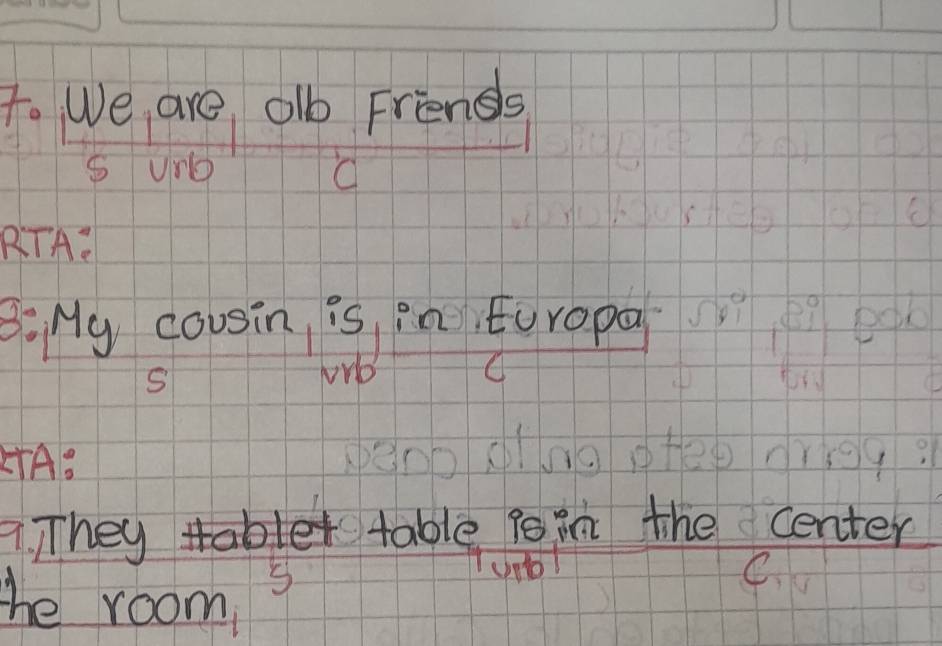 7. We are olb Friends
S vrb C
RTA:
8: My cousin is in Europa
S vrb C
RTA:
9. They tablet table is in the center
S vrb C
the room